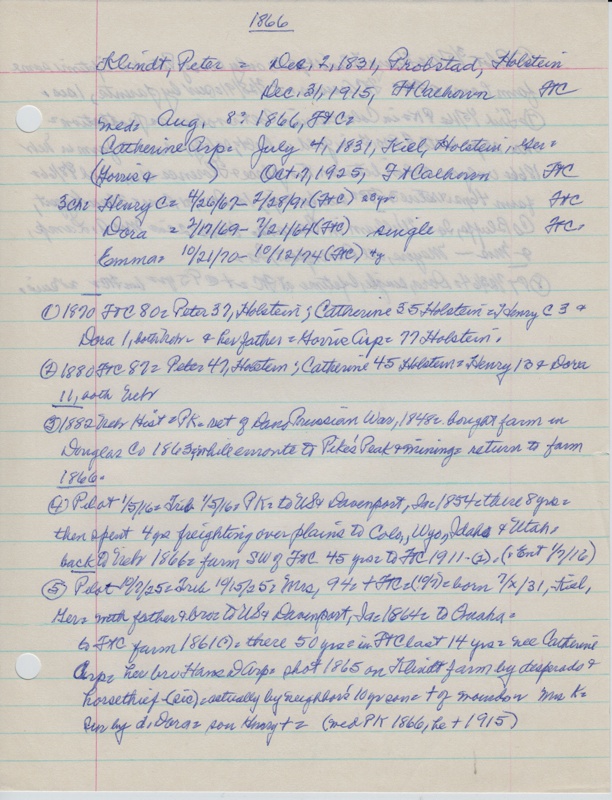 1866
Klindt, Peter = Dec, 2, 1831, Probstad, Holstein
Dec, 31, 1915, FtCalhoun FtC
med= Aug, 8? 1866, FtC=
Catherine Arp= July 4, 1831, Kiel, Holstein, Ger=
(Horris & ) Oct, 7, 1925, FtCalhoun FtC
3ch= Henry C= 4/26/67- 2/28/91 (FtC) FtC
Dora = 2/17/69- 7/21/64 (FtC) single FtC=
Emma= 10/21/70- 10/12/74 (FtC) 4y
① 1870 FtC 80= Peter 37, Holstein; Catherine 35 Holstein= Henry C 3 &
Dora 1, both Nebr & her father = Horris Arp= 77 Holstein.
② 1880 FtC 87= Peter 47, Holstein; Catherine 45 Holstein= Henry 13 & Dora
11, both Nebr
③ 1882 Nebr Hist= PK= vet of Dano Prussian War, 1848= bought farm in
Douglas Co 1863, while enroute to Pike's Peak & mining= return to farm
1866.
④ Pilot 1/5/16= Trib 1/5/16= PK= to US & Davenport, Ia= 1854= there 8 yrs=
then spent 4 yrs freighting over plains to Colo, Wyo, Idaho & Utah,
back to Nebr 1866= farm SW of FtC 45 yrs= to FtC 1911-(2). (Ent 1/7/16)
⑤ Pilot 10/7/25= Trib 10/15/25= Mrs, 94= + FtC= (10/7)= born 7/x/31, Kiel,
Ger= with father & bro= to US & Davenport, Ia= 1864= to Omaha=
to FtC farm 1861(?)= there 50 yrs= in FtC last 14 yrs= nee Catherine
Arp= her bro Hans D Arp= shot 1865 on Klindt farm by desperado &
horsethief (sic)= actually by neighbor's 10 yr son= Mrs K=
sur by d, Dora= son Henry += (med PK 1866, he + 1915)